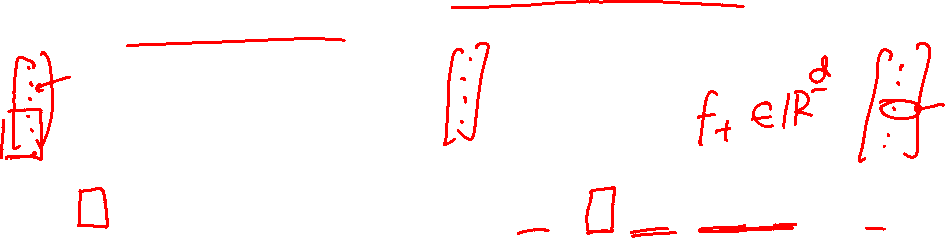 f_t ∈ ℝ^d